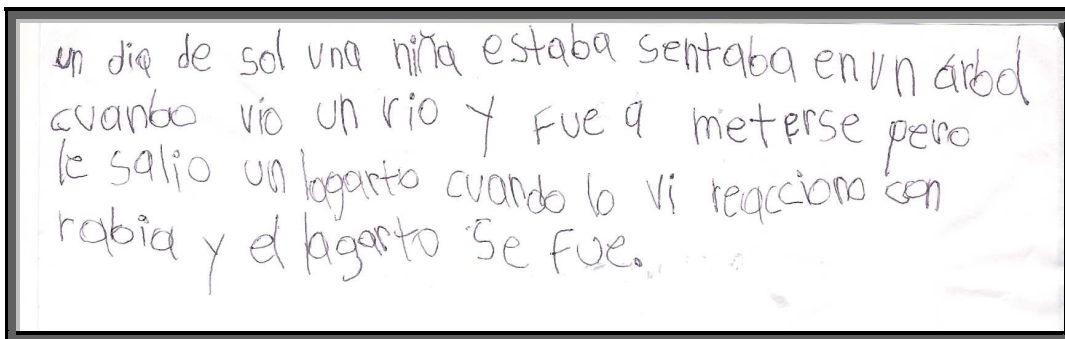 un dia de sol una niña estaba sentaba en un árbol
cuanbo vio un rio y fue a meterse pero
le salio un lagarto cuando lo vi reacciono con
rabia y el lagarto se fue.